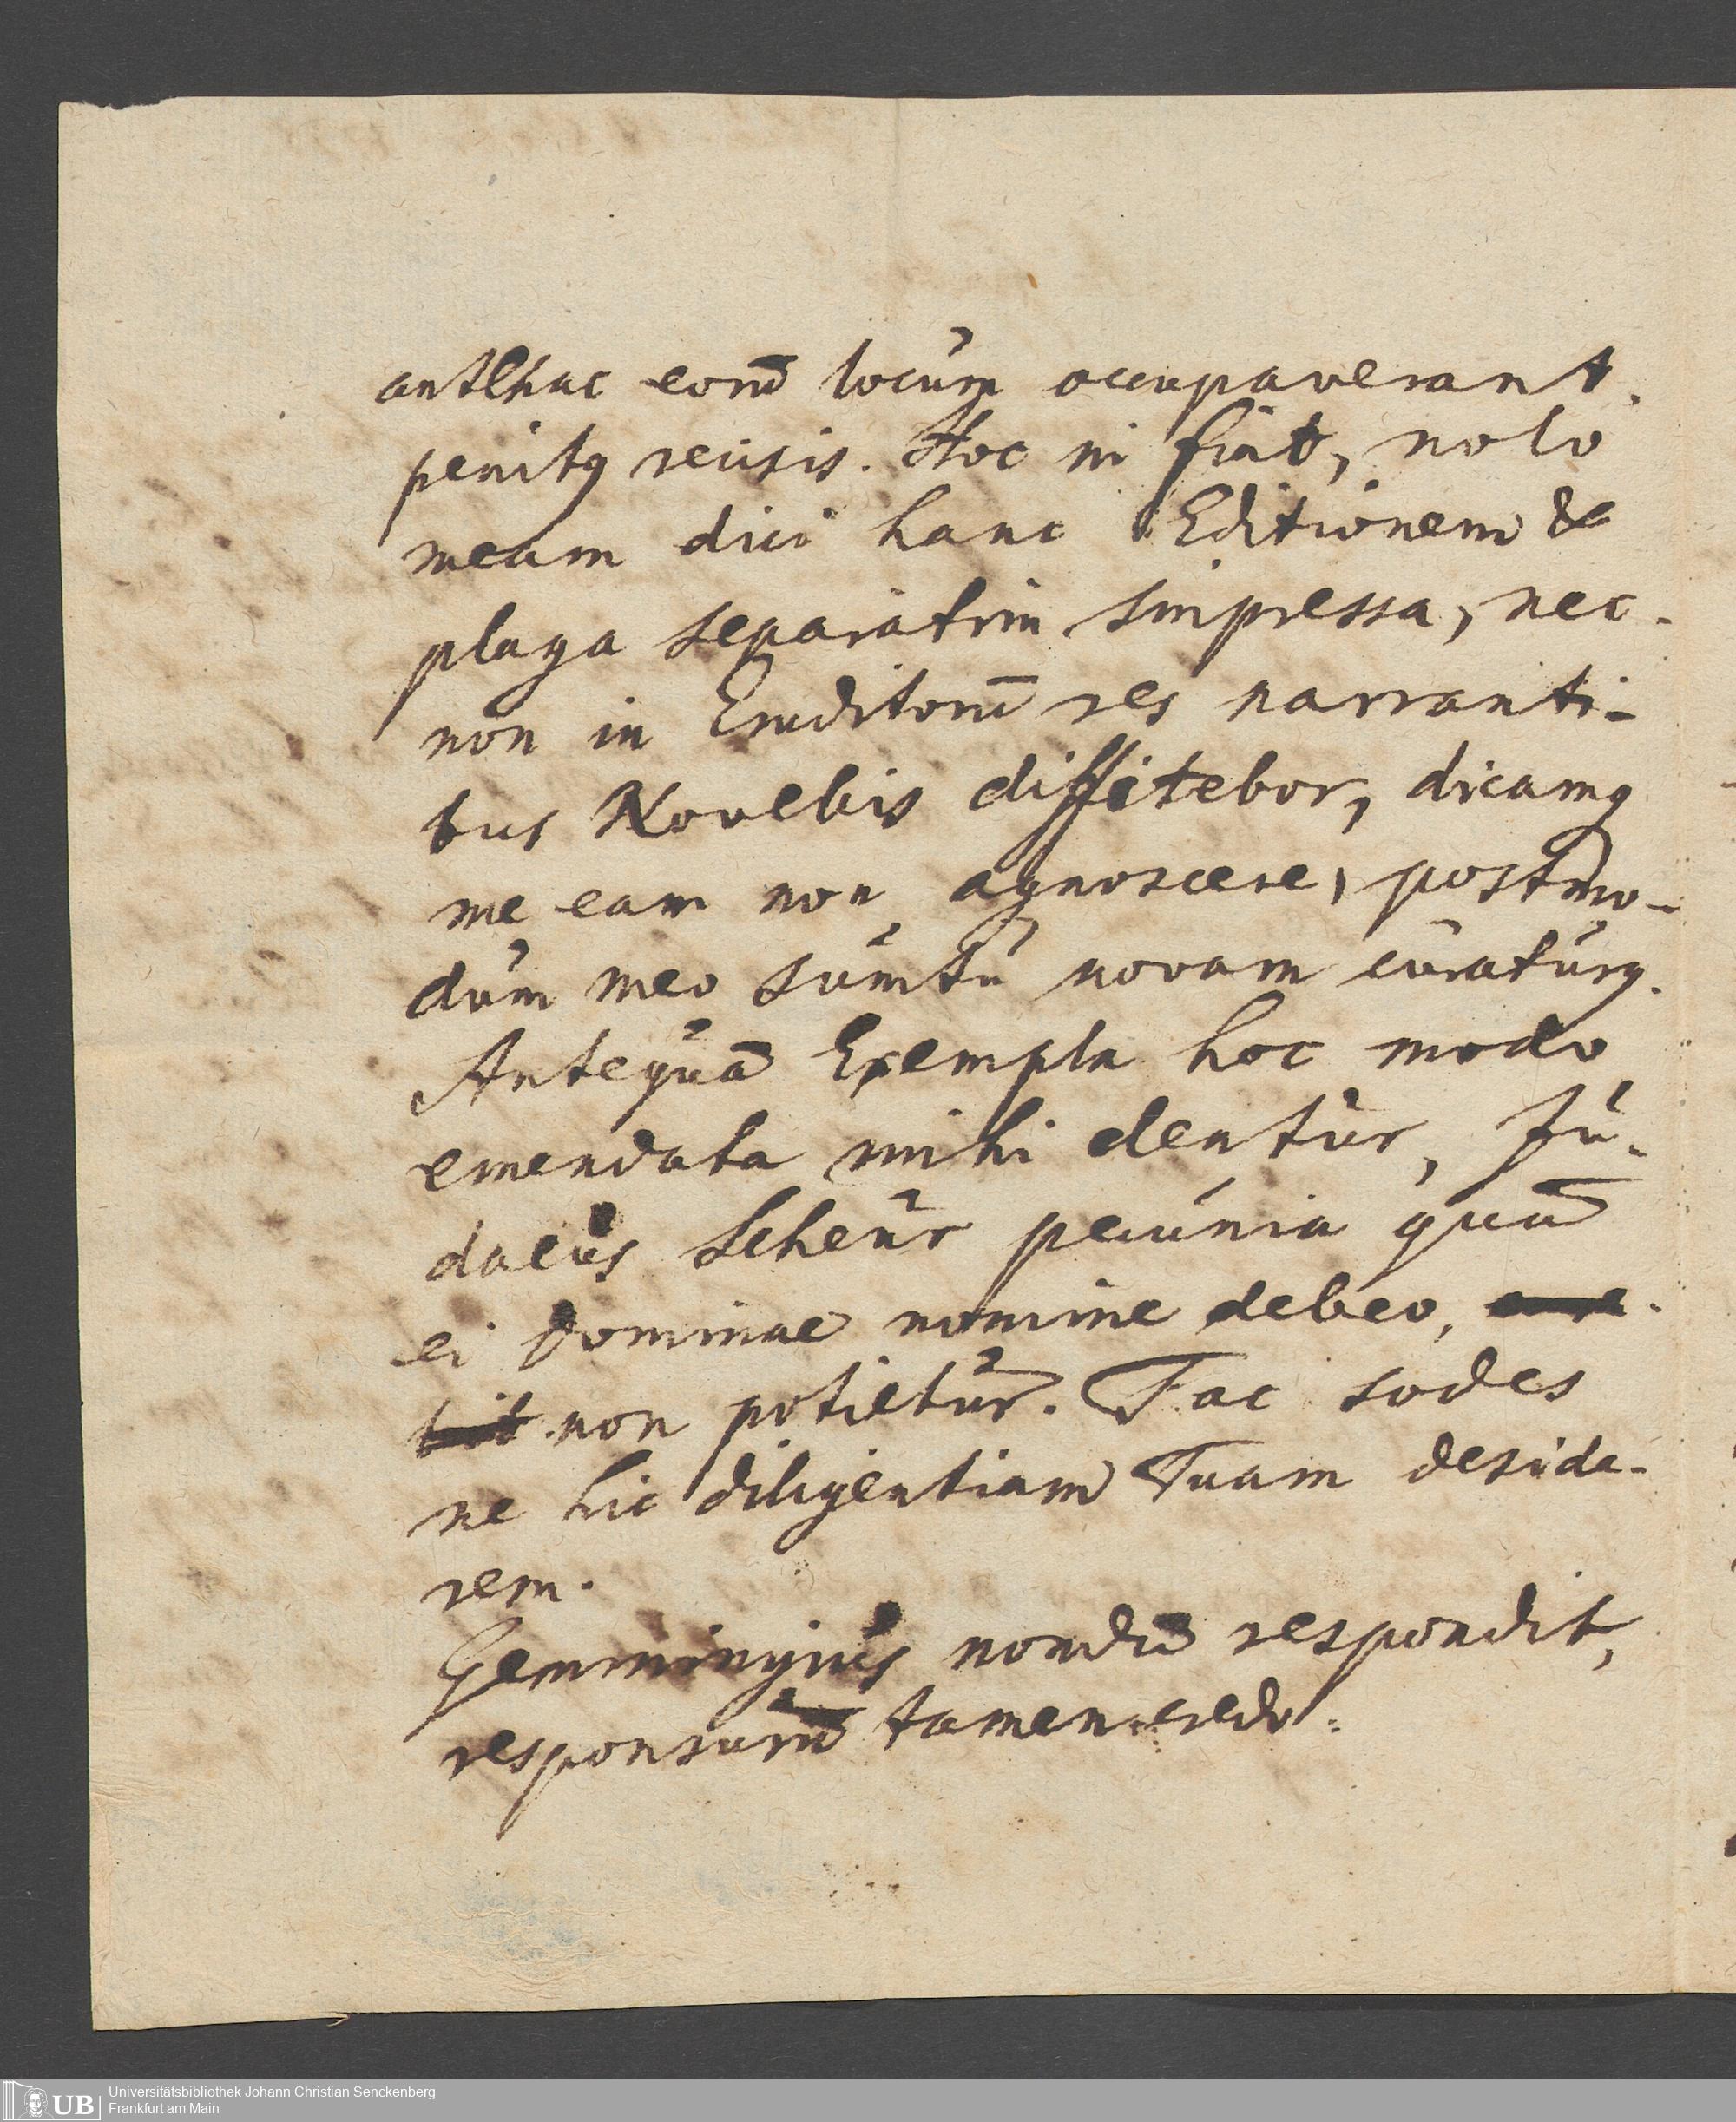 antehac eorū locum occupaverant,
penitq recisis. Hoc ni fiat, nolo
meam dici hanc Editionem &
plaga separatim impressa, nec-
non in Eruditorū res narranti-
bus Novellis diffitebor, dicamq
me eam non agnoscere, postmo-
dum meo sumtu novam curaturq.
Antequā Exempla hoc modo
emendata mihi dentur, Ju-
daeus Scheur pecunia quā
ei Dominae nomine debeo,
bit non potietur. Fac sodes
ne hic diligentiam Tuam deside-
rem.
Gemmingius nondū respondit,
responsurū tamen credo.
Universitätsbibliothek Johann Christian Senckenberg
Frankfurt am Main
UB